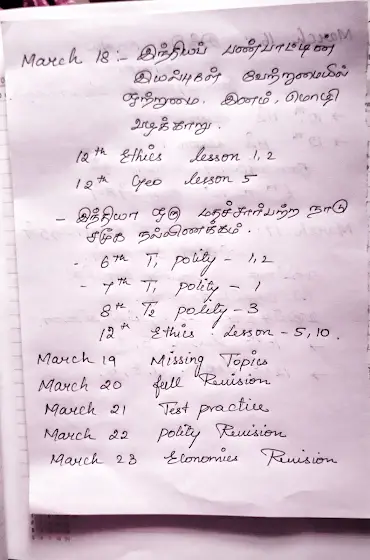 March 18 :- இந்தியப் பண்பாட்டின்
இயல்புகள் வேற்றுமையில்
ஒற்றுமை. இனம், மொழி
வழக்காறு.
12th Ethics lesson 1, 2
12th Geo lesson 5
- இந்தியா ஒரு மதச்சார்பற்ற நாடு
சமூக நல்லிணக்கம்.
- 6th T1 polity - 1, 2
- 7th T1 polity - 1
8th T2 polity - 3
12th Ethics. Lesson - 5, 10.
March 19 Missing Topics
March 20 full Revision
March 21 Test practice
March 22 polity Revision
March 23 Economics Revision